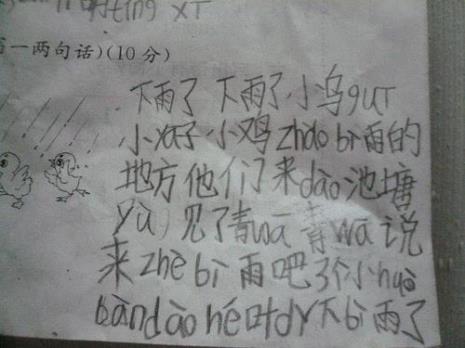 ting xT
一两句话)(10分)
下雨了 下雨了小乌guī
小ya子小鸡zhǎo bì雨的
地方他们了来dào池塘
yù)见了青wā青wā说
来zhè bì雨吧3个小huǒ
bàn dào hé叶dǐ下bì雨了